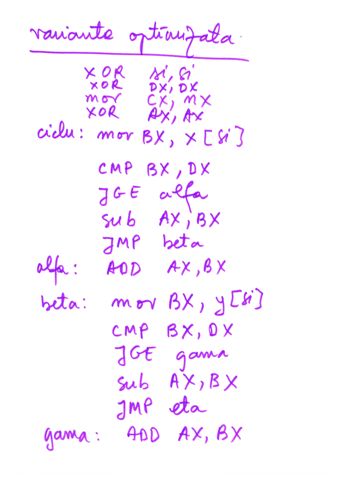 variante optimizata
XOR si, si
XOR DX, DX
mov CX, MX
XOR AX, AX
ciclu: mov BX, x[si]
CMP BX, DX
JGE alfa
sub AX, BX
JMP beta
alfa: ADD AX, BX
beta: mov BX, y[si]
CMP BX, DX
JGE gama
sub AX, BX
JMP eta
gama: ADD AX, BX